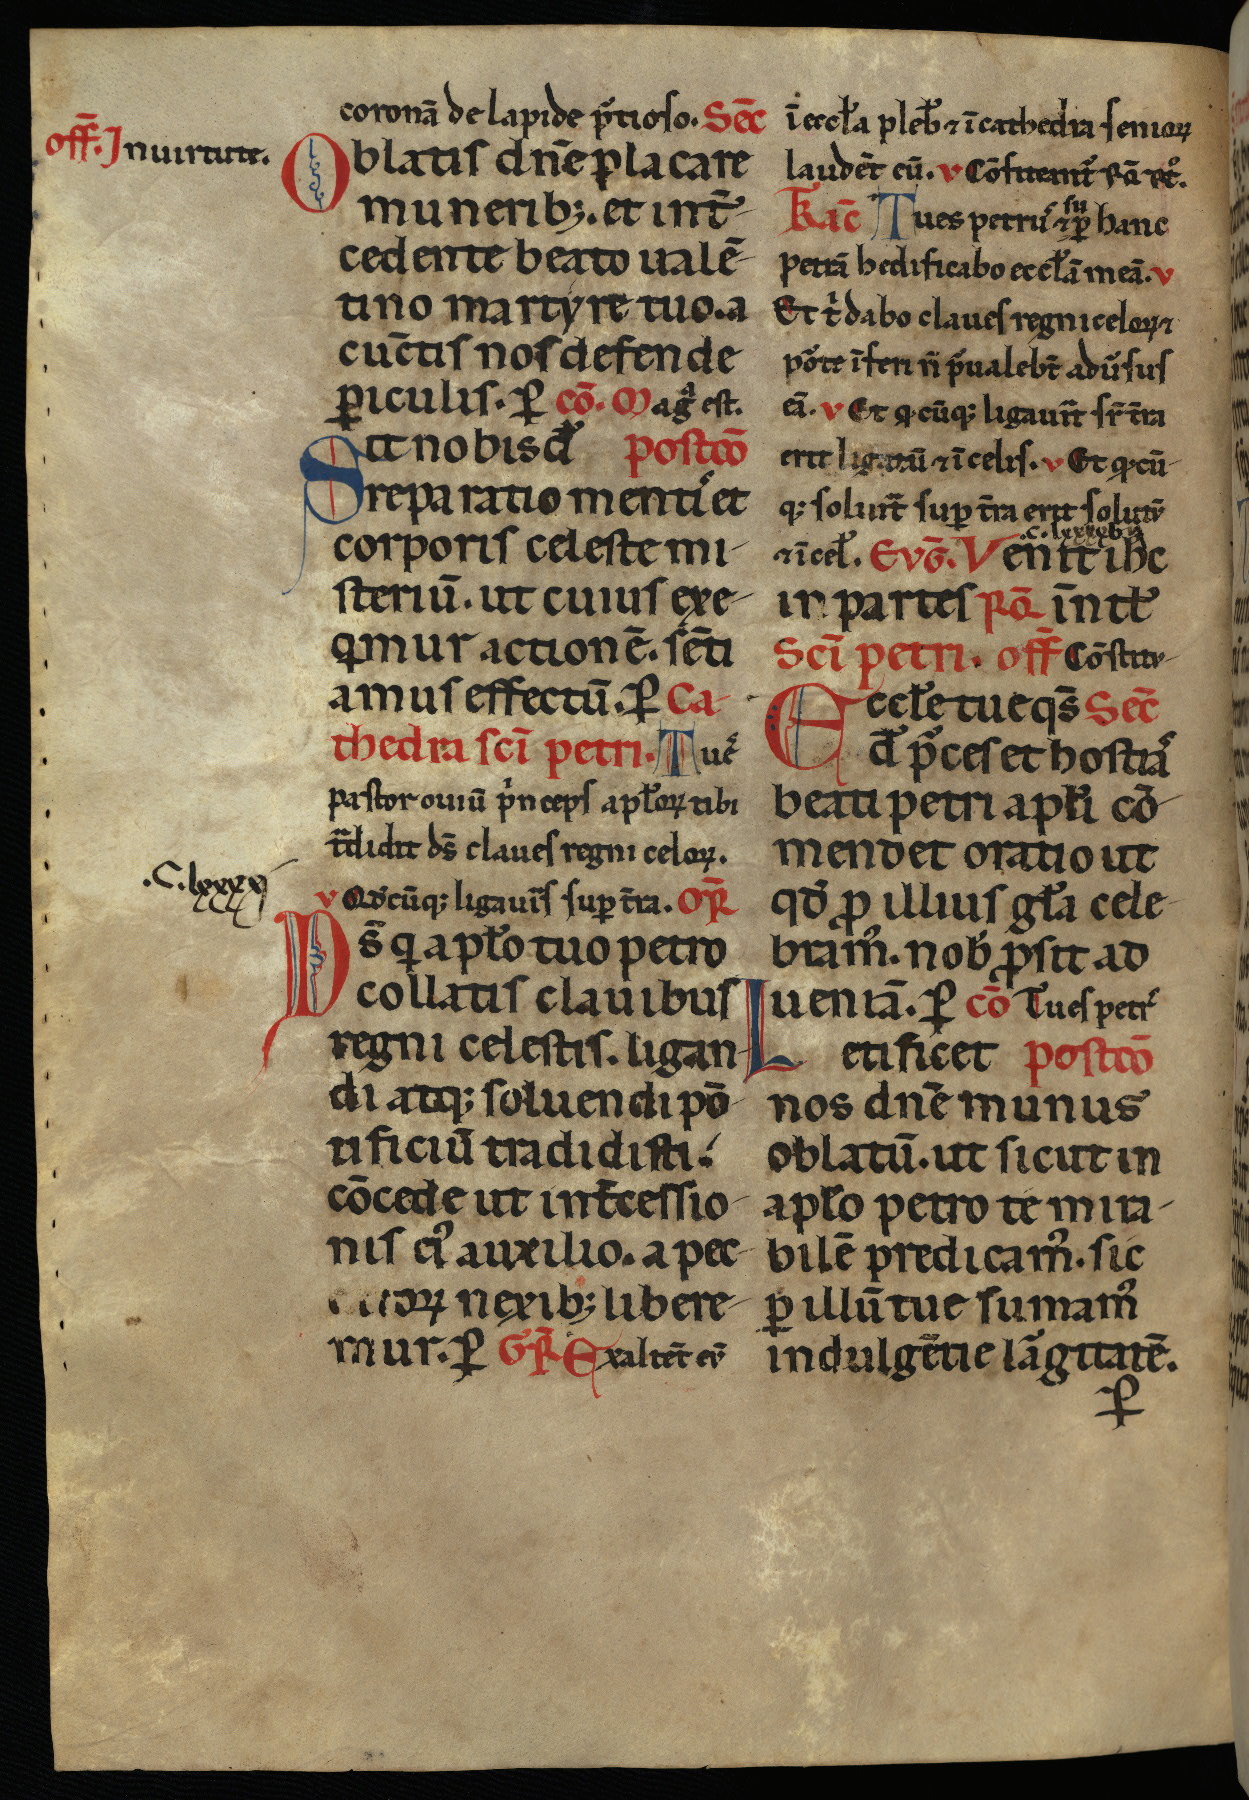 coronā de lapide p̄tioso. Sec̄
off̄. Jnuirtute.
Oblatis dn̄e placare
munerib;. et int̄
cedente beato ualē
tino martyre tuo. a
cūctis nos defende
ꝑiculis. ꝑ cō. Magᷓ est.
Sit nobis dn̄e postcō
reparatio mentiˢ et
corporis celeste mi
steriū. ut cuius exe
qmur actionē. sēti
amus effectū. ꝑ Ca
thedra sc̄i petri. Tu ē
pastor ouiū p̄nceps apl̄oꝝ tibi
t̄didit ds̄ claues regni celoꝝ.
.C.lxxxx
v Qd̄cūq; ligauīs suꝑ t̄ra. Or̄
Ds̄ q apl̄o tuo petro
collatis clauibus
regni celestis. ligan
di atq; soluendi pō
tificiū tradidisti.
cōcede ut int̄cessio
nis ei᾽ auxilio. a pec
toꝝ nexib; libere
mur. ꝑ Gr̄ Exaltēt eū
ī eccl̄a pleb̄ ⁊ ī cathedra senioꝝ
laudēt eū. v Cōfiteant᾽
Trac̄ Tu es petrˢ ⁊ suꝑ hanc
petrā hedificabo eccl̄ā meā. v
Et t̄ dabo claues regni celoꝝ ⁊
pōte īferi n̄ p̄ualebt̄ adūsus
eā. v Et qcūq; ligaūit sr̄ t̄ra
erit ligatū ⁊ ī celis. v Et qcū
q; soluit̄ suꝑ t̄ra erit solutū
⁊ ī cel̄. Evḡ. Venit ih̄c
in partes Rō in tl̄
Sc̄i petri. off̄ Cōstitu
Eccl̄e tue qs̄ Sec̄
dn̄e p̄ces et hostiaˢ
beati petri apl̄i cō
mendet oratio ut
qd̄ ꝓ illius gl̄a cele
bram᾽. nob̄ ꝓsit ad
ueniā. ꝑ cō Tu es petrˢ
Letificet postcō
nos dn̄e munus
oblatū. ut sicut in
apl̄o petro te mira
bilē predicam᾽. sic
ꝑ illū tue sumam᾽
indulgētie lārgitatē.
ꝑ